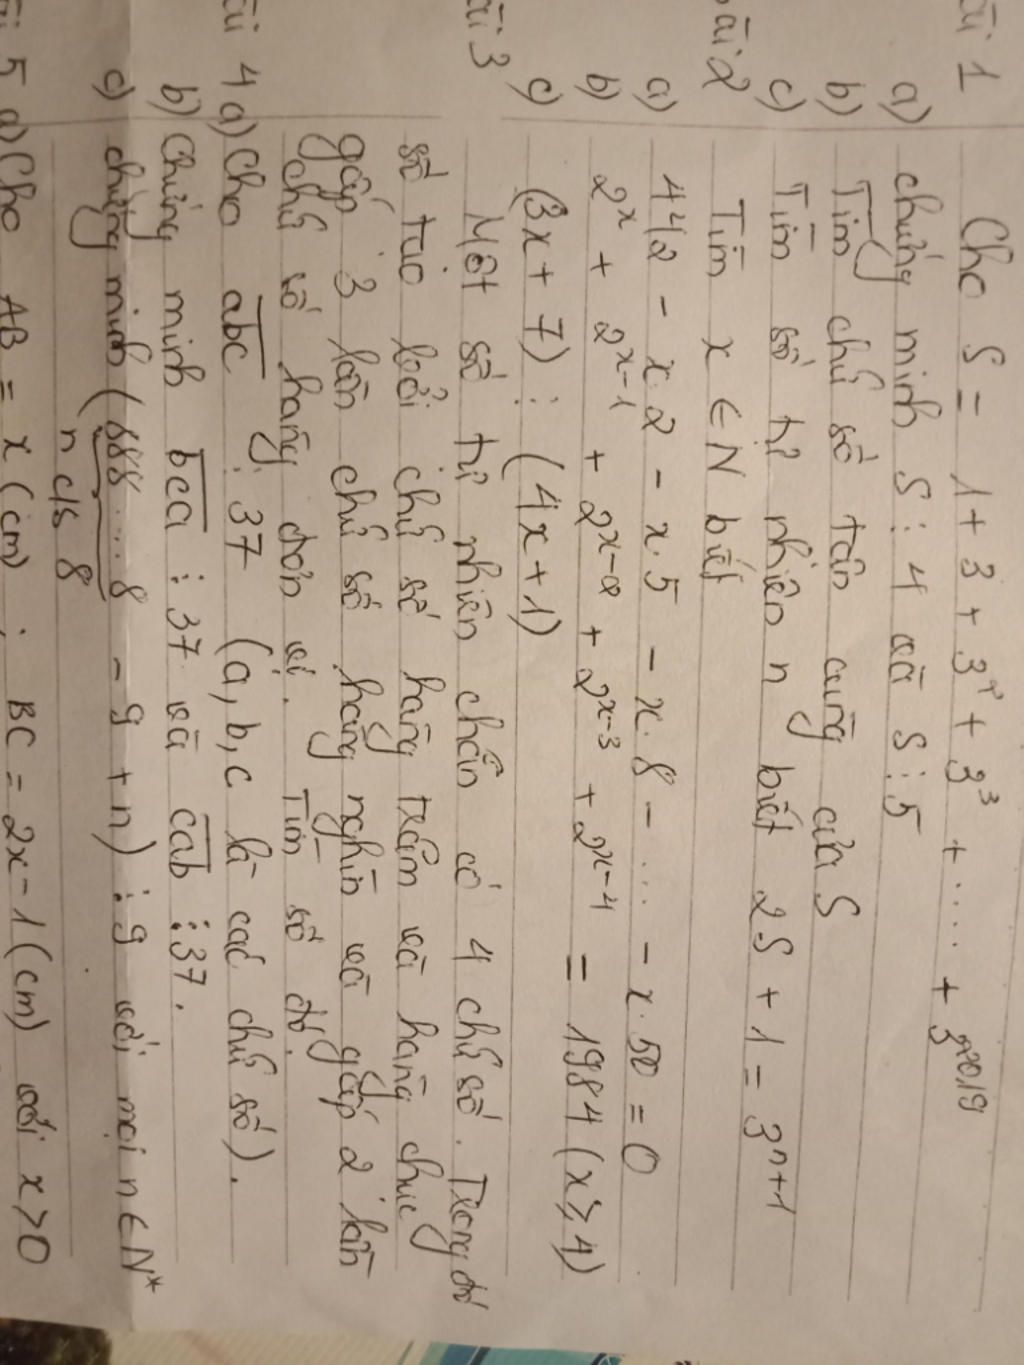 Bài 1 Cho S = 1 + 3 + 3² + 3³ + ..... + 3²⁰¹⁹
a) chứng minh S ⋮ 4 và S ⋮ 5
b) Tìm chữ số tận cùng của S
c) Tìm số tự nhiên n biết 2S + 1 = 3ⁿ⁺¹
Bài 2 Tìm x ∈ N biết
a) 442 - x.2 - x.5 - x.8 - .... - x.50 = 0
b) 2ˣ + 2ˣ⁻¹ + 2ˣ⁻² + 2ˣ⁻³ + 2ˣ⁻⁴ = 1984 (x ≥ 4)
c) (3x + 7) ⋮ (4x + 1)
Bài 3 Một số tự nhiên chẵn có 4 chữ số. Trong đó
số tạo bởi chữ số hàng trăm và hàng chục
gấp 3 lần chữ số hàng nghìn và gấp 2 lần
chữ số hàng đơn vị. Tìm số đó.
Bài 4 a) Cho a̅b̅c̅ ⋮ 37 (a, b, c là các chữ số).
b) Chứng minh b̅c̅a̅ ⋮ 37 và c̅a̅b̅ ⋮ 37.
c) chứng minh (888....8 - 9 + n) ⋮ 9 với mọi n ∈ N*
n c/s 8
Bài 5 a) Cho AB = x (cm) ; BC = 2x - 1 (cm) với x > 0